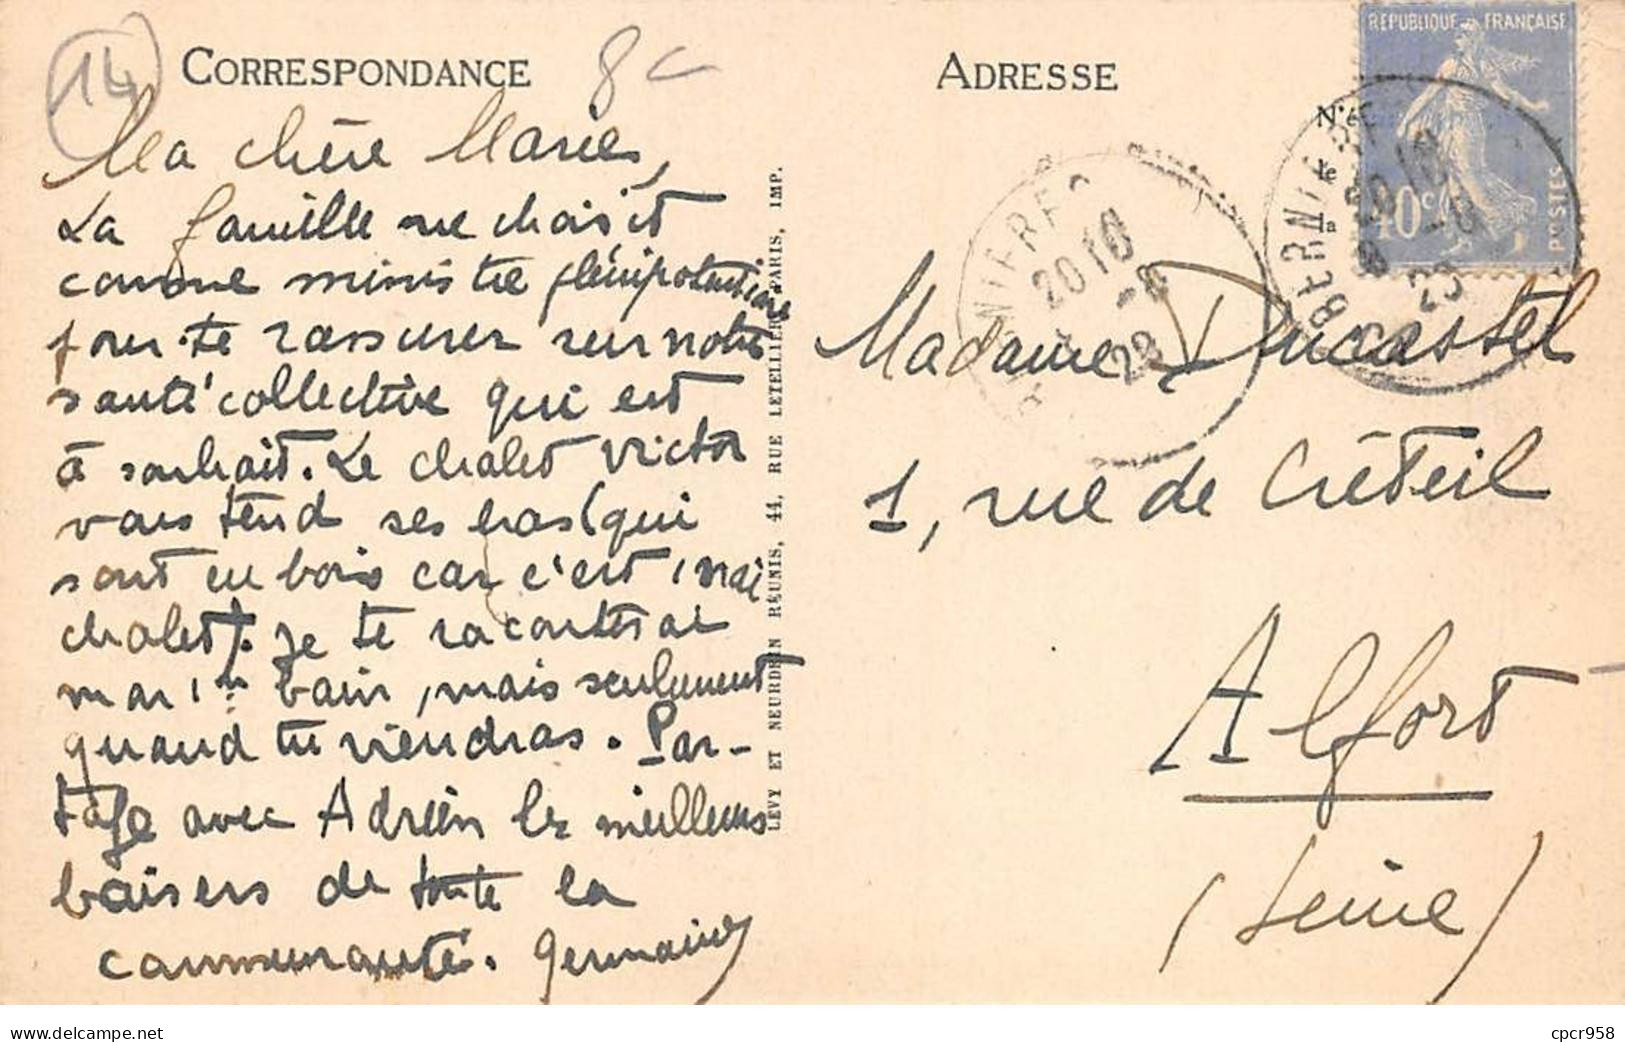 14
CORRESPONDANCE
8c
Ma chère Marie,
La famille me choisit
comme ministre plénipotentiaire
pour te rassurer sur notre
santé collective qui est
à souhait. Le chalet Victor
vous tend ses bras (qui
sont en bois car c'est, vrai
chalet). Je te raconterai
mar bain, mais seulement
quand tu viendras. Par-
tage avec Adrien les meilleurs
baisers de toute la
communauté. Germaine
LEVY ET NEURDEIN RÉUNIS, 44, RUE LETELLIER, PARIS, IMP.
ADRESSE
REPUBLIQUE FRANÇAISE
40c
POSTES
BERNIERES
20 10
-8
28
BERNIERE
20 10
Madame Ducastel
1, rue de Créteil
Alfort
(Seine)
delcampe.net
cpcr958